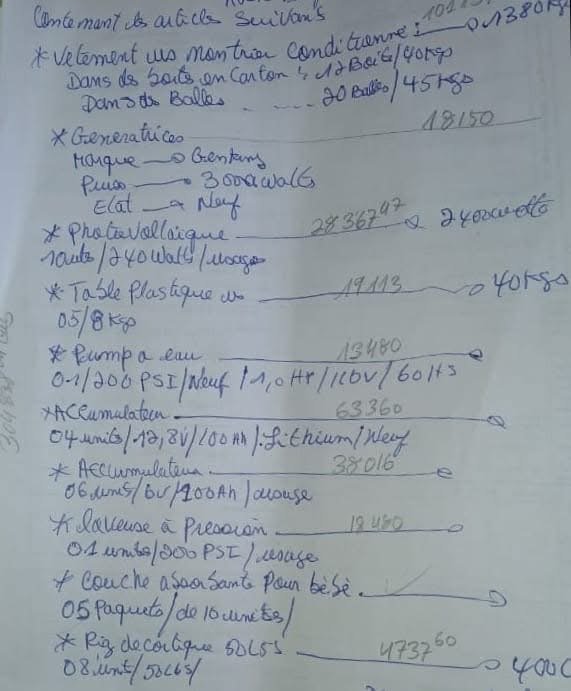 Contenant des articles Suivants
1380Kgs
* Vetement us mon triee Conditionne :
Dans des boits en Carton : 12 Boits/40Kgs
Dans des Balles ..... 20 Balles/45Kgs
* Generatrices 18150
Marque → Gentans
→ 3000 walts
Etat → Neuf
* Photovoltaique 28367 47 2400 watts
10uts/240 Watts/usage
* Table Plastique us 19113 40Kgs
05/8Kgs
* Pump a eau 13480
01/200 PSI/Neuf/1,0 HP/110V/60Hs
*Accumulateur 63360
04 units/12,8V/100Ah/.Lithium/Neuf
* Accumulateur. 38016
06 units/6V/200Ah/usage
* laveuse à Pression 18480
01 units/200 PSI/usage
* Couche absorbante Pour bèbè.
05 Paquets/de 10 unites/
* Riz decortique 50LBS 4737 60 400
08 unit/50LBS/